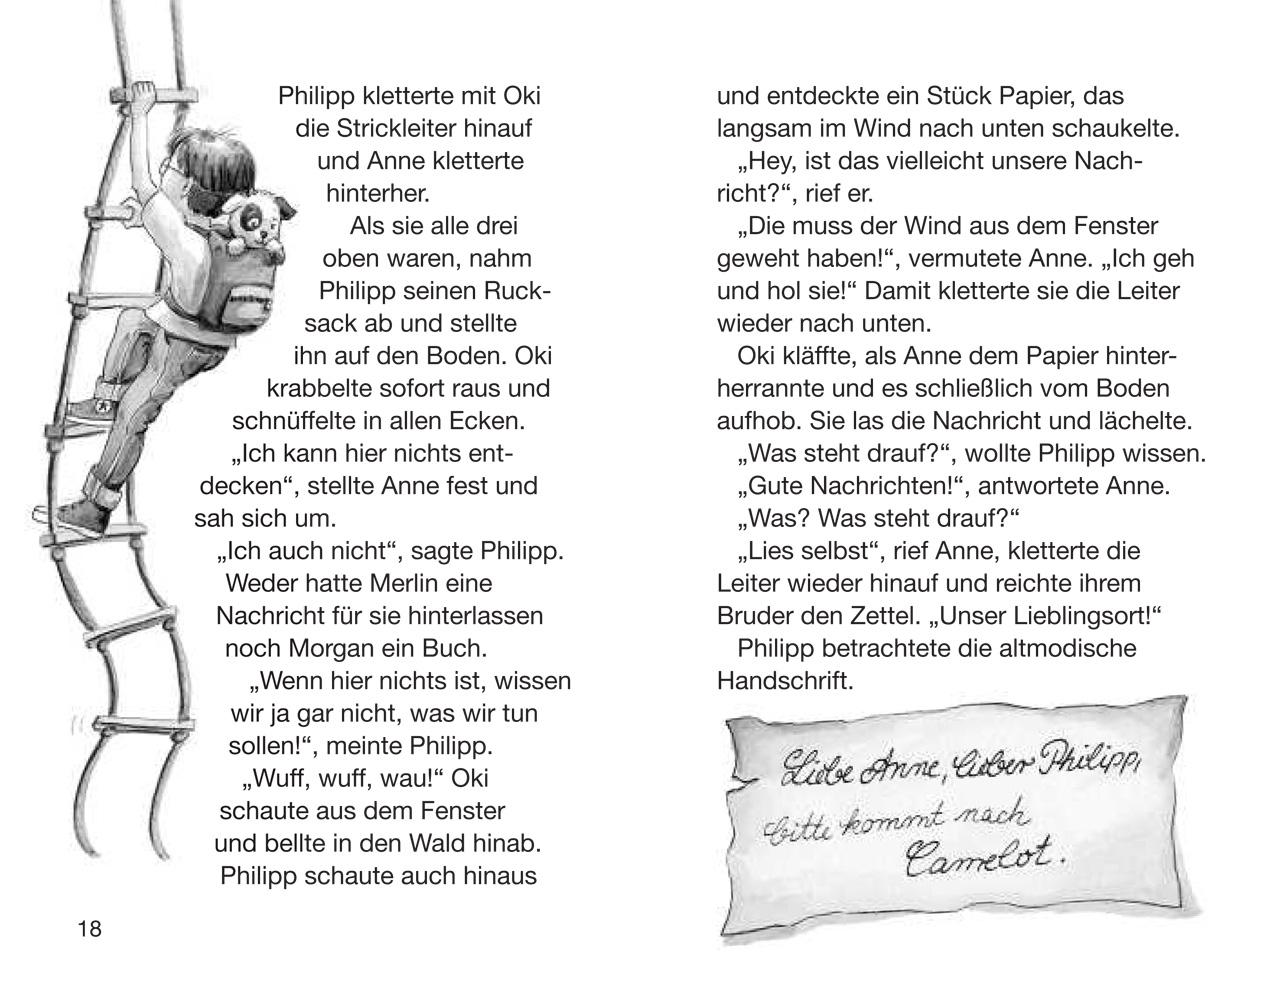 Philipp kletterte mit Oki
die Strickleiter hinauf
und Anne kletterte
hinterher.
Als sie alle drei
oben waren, nahm
Philipp seinen Ruck-
sack ab und stellte
ihn auf den Boden. Oki
krabbelte sofort raus und
schnüffelte in allen Ecken.
„Ich kann hier nichts ent-
decken“, stellte Anne fest und
sah sich um.
„Ich auch nicht“, sagte Philipp.
Weder hatte Merlin eine
Nachricht für sie hinterlassen
noch Morgan ein Buch.
„Wenn hier nichts ist, wissen
wir ja gar nicht, was wir tun
sollen!“, meinte Philipp.
„Wuff, wuff, wau!“ Oki
schaute aus dem Fenster
und bellte in den Wald hinab.
Philipp schaute auch hinaus
18
und entdeckte ein Stück Papier, das
langsam im Wind nach unten schaukelte.
„Hey, ist das vielleicht unsere Nach-
richt?“, rief er.
„Die muss der Wind aus dem Fenster
geweht haben!“, vermutete Anne. „Ich geh
und hol sie!“ Damit kletterte sie die Leiter
wieder nach unten.
Oki kläffte, als Anne dem Papier hinter-
herrannte und es schließlich vom Boden
aufhob. Sie las die Nachricht und lächelte.
„Was steht drauf?“, wollte Philipp wissen.
„Gute Nachrichten!“, antwortete Anne.
„Was? Was steht drauf?“
„Lies selbst“, rief Anne, kletterte die
Leiter wieder hinauf und reichte ihrem
Bruder den Zettel. „Unser Lieblingsort!“
Philipp betrachtete die altmodische
Handschrift.
Liebe Anne, lieber Philipp,
bitte kommt nach
Camelot.